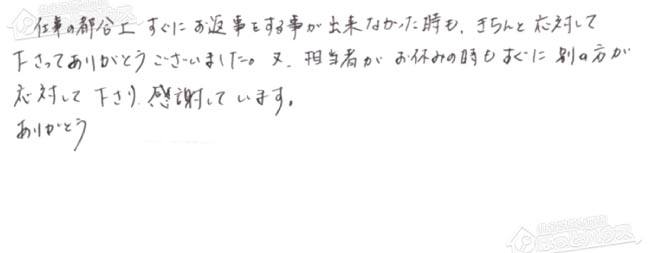 仕事の都合上 すぐに お返事をする事が出来なかった時も、きちんと応対して
下さってありがとうございました。又、担当者が お休みの時も すぐに 別の方が
応対して下さり 感謝しています。
ありがとう